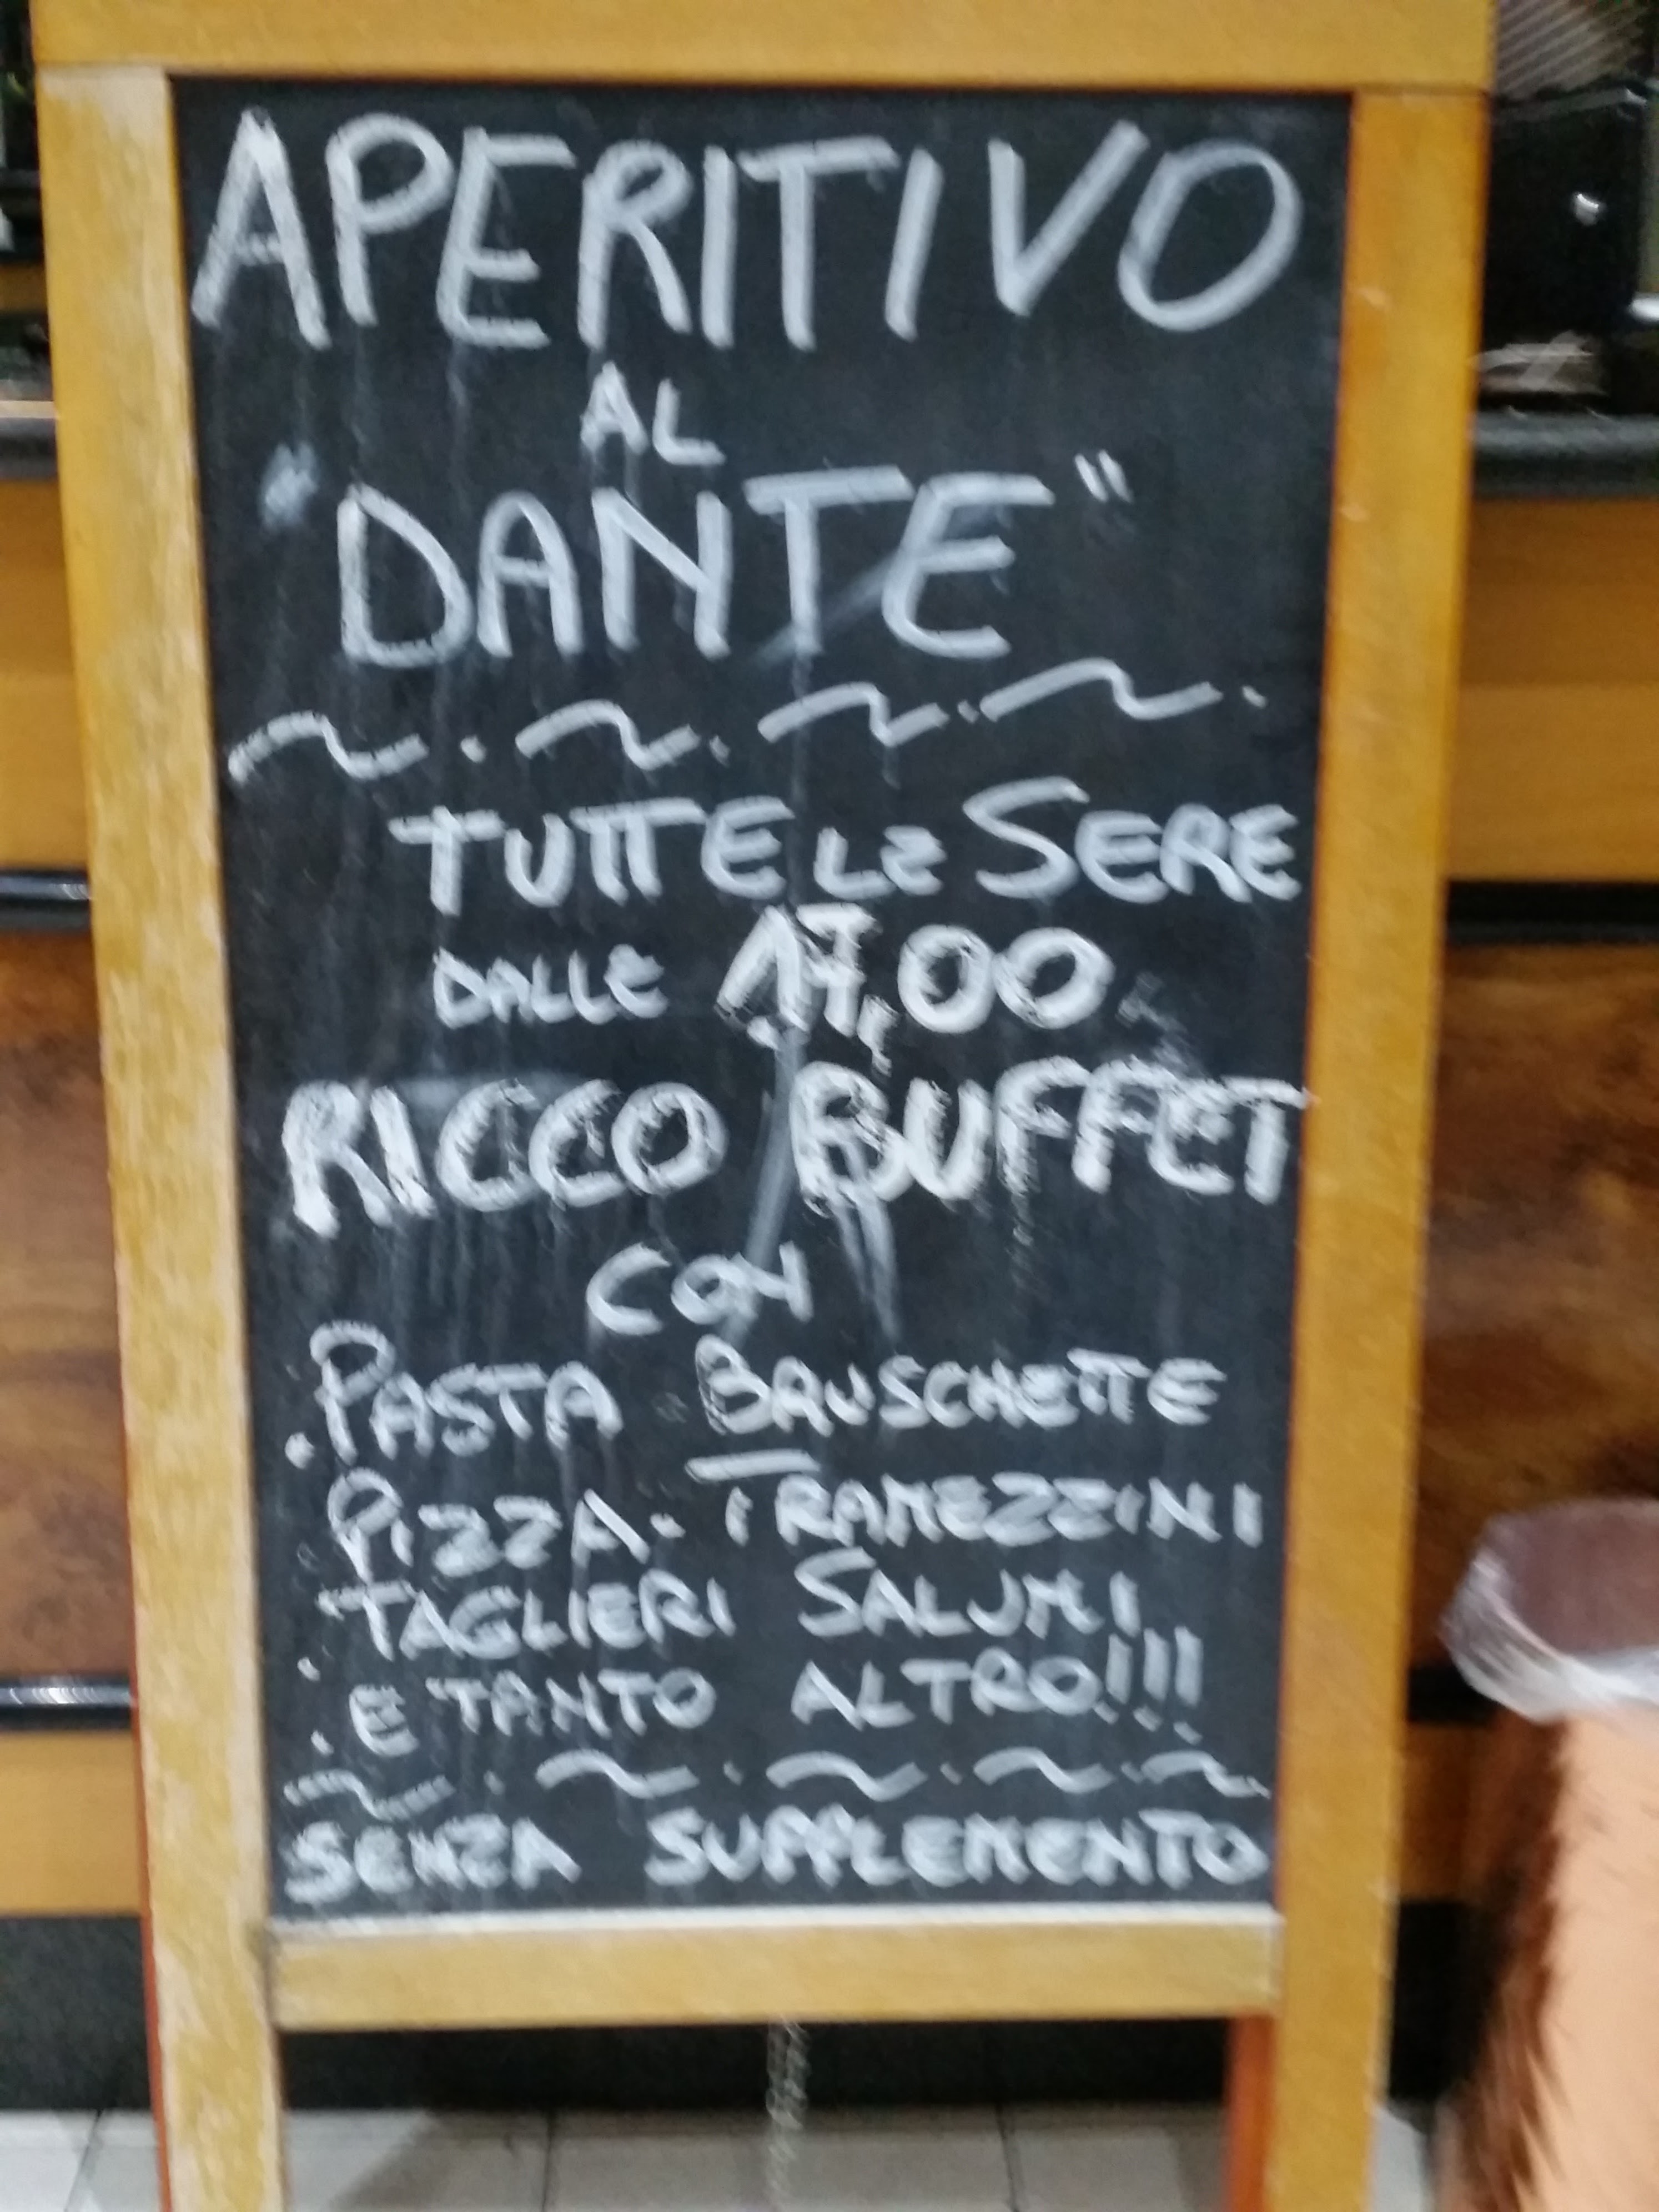 APERITIVO
AL
"DANTE"
~.~.~.~.
TUTTE LE SERE
DALLE 17,00
RICCO BUFFET
CON
.PASTA . BRUSCHETTE
. PIZZA. TRAMEZZINI
. TAGLIERI SALUMI
. E TANTO ALTRO!!!
~.~.~.~.~.
SENZA SUPPLEMENTO